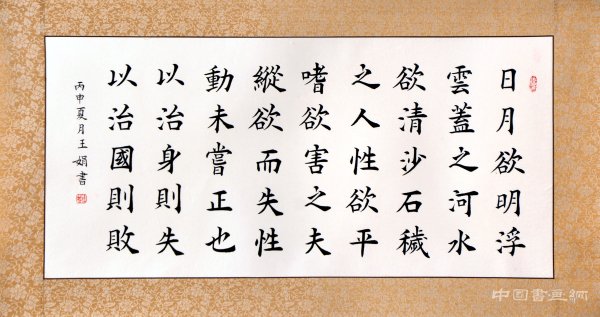 日月欲明浮
雲蓋之河水
欲清沙石穢
之人性欲平
嗜欲害之夫
縱欲而失性
動未嘗正也
以治身則失
以治國則敗
丙申夏月王娟書
中国書画网